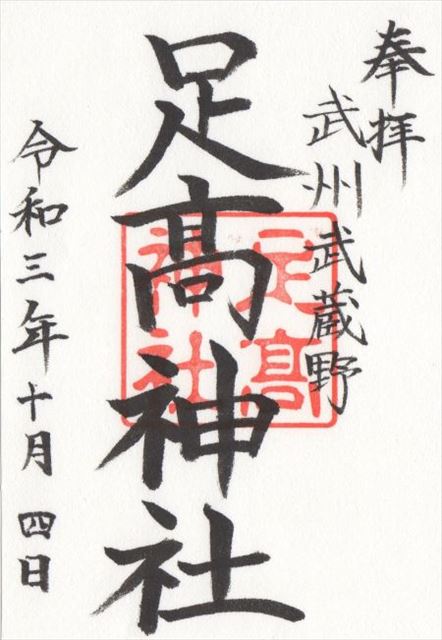 奉拝
武州 武蔵野
足髙神社
足髙
神社
令和三年十月 四日